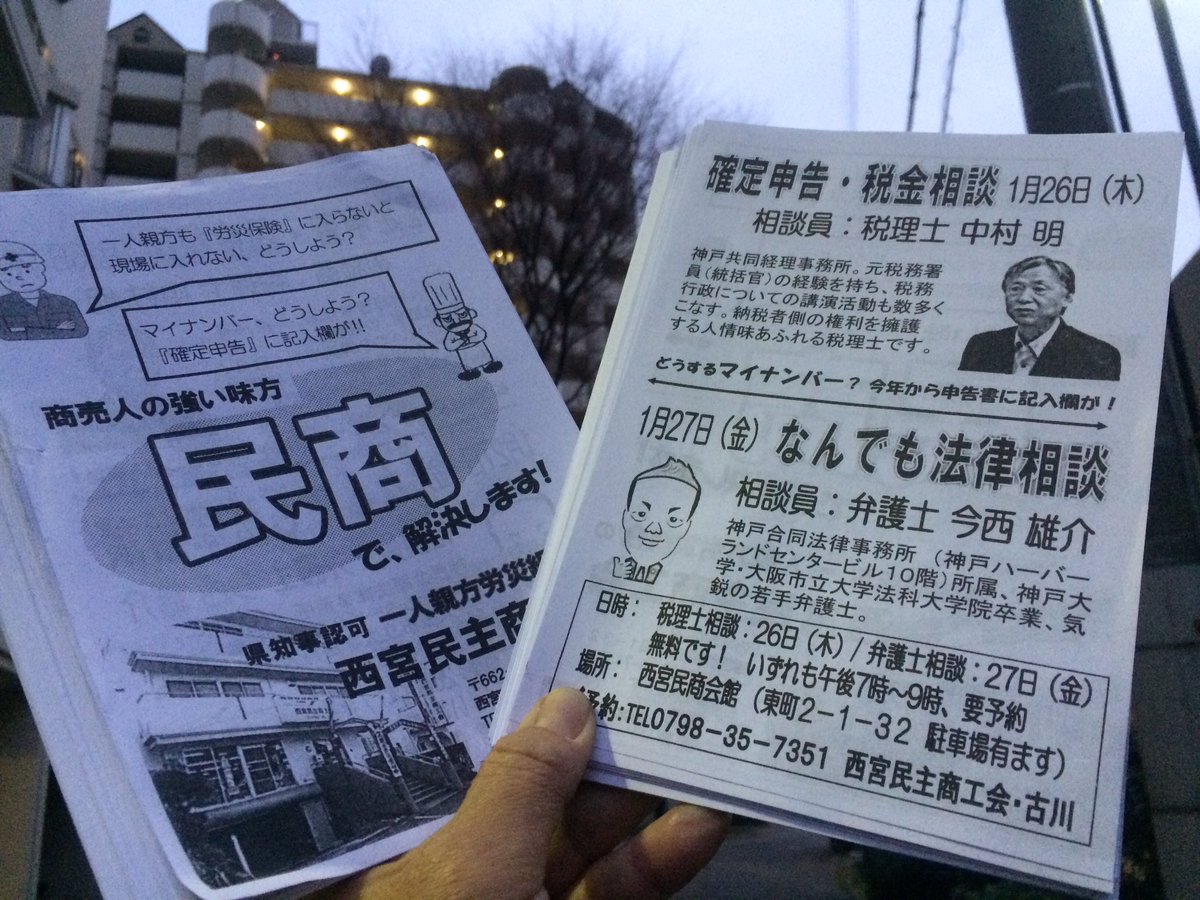 一人親方も『労災保険』に入らないと
現場に入れない、どうしよう？
マイナンバー、どうしよう？
『確定申告』に記入欄が!!
商売人の強い味方
民商
で、解決します!
県知事認可 一人親方労災
西宮民主商
〒662-
西宮
確定申告・税金相談 1月26日（木）
相談員：税理士 中村 明
神戸共同経理事務所。元税務署
員（統括官）の経験を持ち、税務
行政についての講演活動も数多く
こなす。納税者側の権利を擁護
する人情味あふれる税理士です。
どうするマイナンバー？ 今年から申告書に記入欄が！
1月27日（金） なんでも法律相談
相談員：弁護士 今西 雄介
神戸合同法律事務所（神戸ハーバー
ランドセンタービル10階）所属、神戸大
学・大阪市立大学法科大学院卒業、気
鋭の若手弁護士。
日時： 税理士相談：26日（木）/ 弁護士相談：27日（金）
無料です！ いずれも午後7時～9時、要予約
場所： 西宮民商会館（東町2－1－32 駐車場有ます）
予約：TEL0798－35－7351 西宮民主商工会・古川